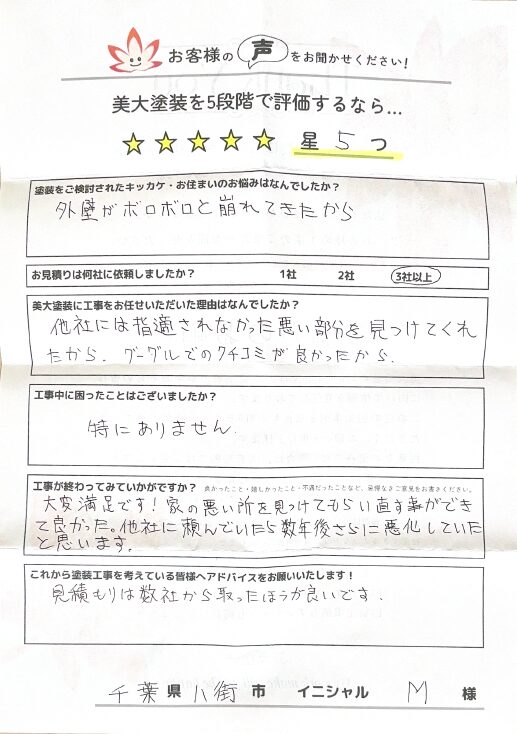 お客様の声をお聞かせください!
美大塗装を5段階で評価するなら…
星 5 つ
塗装をご検討されたキッカケ・お住まいのお悩みはなんでしたか?
外壁がボロボロと崩れてきたから
お見積りは何社に依頼しましたか? 1社 2社 3社以上
美大塗装に工事をお任せいただいた理由はなんでしたか?
他社には指適されなかった悪い部分を見つけてくれ
たから、グーグルでのクチコミが良かったから、
工事中に困ったことはございましたか?
特にありません.
工事が終わってみていかがですか? 良かったこと・嬉しかったこと・不満だったことなど、忌憚なきご意見をお書きください。
大変満足です!家の悪い所を見つけてもらい直す事ができ
て良かった。他社に頼んでいたら数年後さらに悪化していた
と思います.
これから塗装工事を考えている皆様へアドバイスをお願いいたします!
見積もりは数社から取ったほうが良いです.
千葉県八街市 イニシャル M 様